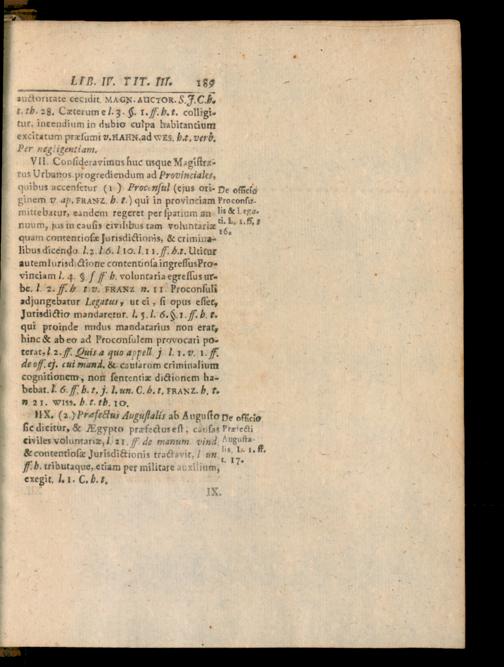 LIB. IV. TIT. III. 189
auctoritate cecidit. MAGN. AUCTOR. S.J.C.h.
t. th. 28. Cæterum e l. 3. §. 1. ff. h. t. colligi-
tur, incendium in dubio culpa habitantium
excitatum præsumi v. HAHN. ad WES. h.t. verb.
Per negligentiam.
VII. Consideravimus huc usque Magistra-
tus Urbanos progrediendum ad Provinciales,
quibus accensetur (1) Proconsul (ejus ori-
ginem v. ap. FRANZ. h. t.) qui in provinciam
mittebatur, eandem regeret per spatium an-
nuum, jus in causis civilibus tam voluntariæ
quam contentiosæ Jurisdictionis, & crimina-
libus dicendo l.2. l.6. l.10. l.11. ff. h.t. Utitur
autem Jurisdictione contentiosa ingressus Pro-
vinciam l. 4. §. f ff h. voluntaria egressus ur-
be. l. 2. ff. h t v. FRANZ n. 11 Proconsuli
adjungebatur Legatus, ut ei, si opus esset,
Jurisdictio mandaretur. l. 5. l. 6. §. 1. ff. h. t.
qui proinde nudus mandatarius non erat,
hinc & ab eo ad Proconsulem provocari po-
terat, l. 2. ff. Quis a quo appell j. l. 1. v. 1. ff.
de off. ej. cui mand. & causarum criminalium
cognitionem, non sententiæ dictionem ha-
bebat. l. 6. ff. h. t. j. l. un. C. h. t. FRANZ. h. t.
n 21. WISS. h. t. th. 10.
IIX. (2.) Præfectus Augustalis ab Augusto
sic dicitur, & Ægypto præfectus est, causas
civiles voluntariæ, l. 21. ff de manum. vind.
& contentiosæ Jurisdictionis tractavit, l un
ff. h. tributaque, etiam per militare auxilium,
exegit. l. 1. C. h. t.
IX.
De officio
Proconsu-
lis & Lega-
ti. L. 1. ff, t
16.
De officio
Præfecti
Augusta-
lis. L. 1. ff.
t. 17.